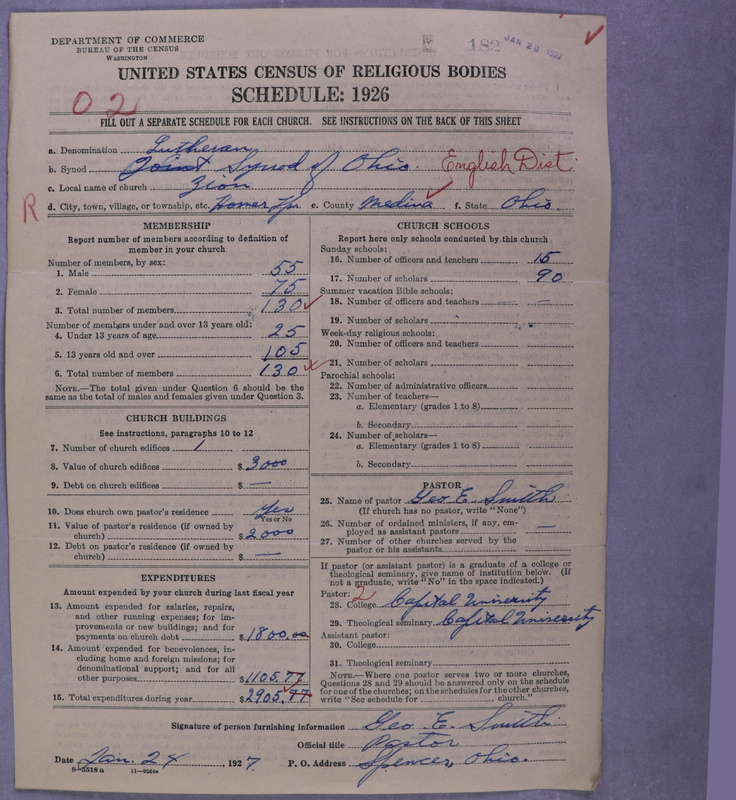 DEPARTMENT OF COMMERCE
BUREAU OF THE CENSUS
WASHINGTON
182 JAN 28 1927
UNITED STATES CENSUS OF RELIGIOUS BODIES
SCHEDULE: 1926
02
FILL OUT A SEPARATE SCHEDULE FOR EACH CHURCH. SEE INSTRUCTIONS ON THE BACK OF THIS SHEET
a. Denomination Lutheran
b. Synod Joint Synod of Ohio. English Dist.
c. Local name of church Zion
R
d. City, town, village, or township, etc. Homer Tpr. e. County Medina f. State Ohio.
MEMBERSHIP
Report number of members according to definition of
member in your church
Number of members, by sex:
1. Male 55
2. Female 75
3. Total number of members 130
Number of members under and over 13 years old:
4. Under 13 years of age 25
5. 13 years old and over 105
6. Total number of members 130
NOTE.—The total given under Question 6 should be the
same as the total of males and females given under Question 3.
CHURCH BUILDINGS
See instructions, paragraphs 10 to 12
7. Number of church edifices 1
8. Value of church edifices $ 3000
9. Debt on church edifices $ —
10. Does church own pastor's residence Yes
Yes or No
11. Value of pastor's residence (if owned by
church) $ 2000
12. Debt on pastor's residence (if owned by
church) $ —
EXPENDITURES
Amount expended by your church during last fiscal year
13. Amount expended for salaries, repairs,
and other running expenses; for im-
provements or new buildings; and for
payments on church debt $ 1800.00
14. Amount expended for benevolences, in-
cluding home and foreign missions; for
denominational support; and for all
other purposes $ 1105.77
15. Total expenditures during year $ 2905.77
CHURCH SCHOOLS
Report here only schools conducted by this church
Sunday schools:
16. Number of officers and teachers 15
17. Number of scholars 90
Summer vacation Bible schools:
18. Number of officers and teachers — —
19. Number of scholars
Week-day religious schools:
20. Number of officers and teachers
21. Number of scholars
Parochial schools:
22. Number of administrative officers
23. Number of teachers—
a. Elementary (grades 1 to 8)
b. Secondary
24. Number of scholars—
a. Elementary (grades 1 to 8)
b. Secondary
PASTOR
25. Name of pastor Geo E. Smith
(If church has no pastor, write "None")
26. Number of ordained ministers, if any, em-
ployed as assistant pastors —
27. Number of other churches served by the
pastor or his assistants
If pastor (or assistant pastor) is a graduate of a college or
theological seminary, give name of institution below. (If
not a graduate, write "No" in the space indicated.)
Pastor: 2
28. College Capital University
29. Theological seminary Capital University
Assistant pastor:
30. College
31. Theological seminary
NOTE.—Where one pastor serves two or more churches,
Questions 28 and 29 should be answered only on the schedule
for one of the churches; on the schedules for the other churches,
write "See schedule for church."
Signature of person furnishing information Geo. E. Smith
Official title Pastor
Date Jan. 24, 1927. P. O. Address Spencer, Ohio.
8-5518a 11-9264a